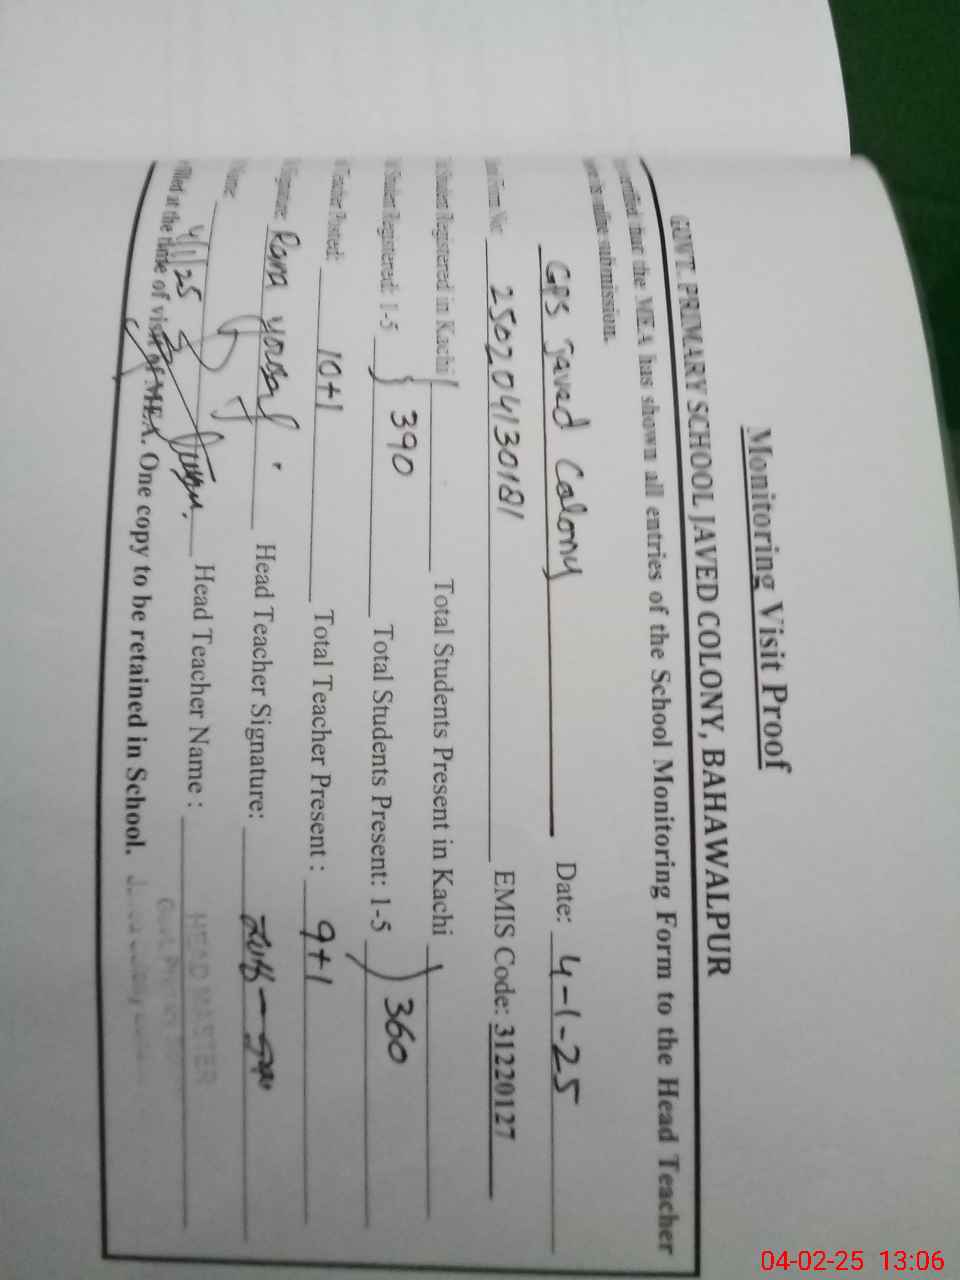 Monitoring Visit Proof
GOVT. PRIMARY SCHOOL JAVED COLONY, BAHAWALPUR
that the MEA has shown all entries of the School Monitoring Form to the Head Teacher
submission.
GPS Javed Colony Date: 4-1-25
250204130181 EMIS Code: 31220127
Registered in Kachi Total Students Present in Kachi
Registered: 1-5 } 390 Total Students Present: 1-5 } 360
Teacher Posted: 10+1 Total Teacher Present : 9+1
Signature: Rana Head Teacher Signature:
Name: Head Teacher Name :
HEAD MASTER
4/1/25
filled at the time of visit of MEA. One copy to be retained in School.
04-02-25 13:06